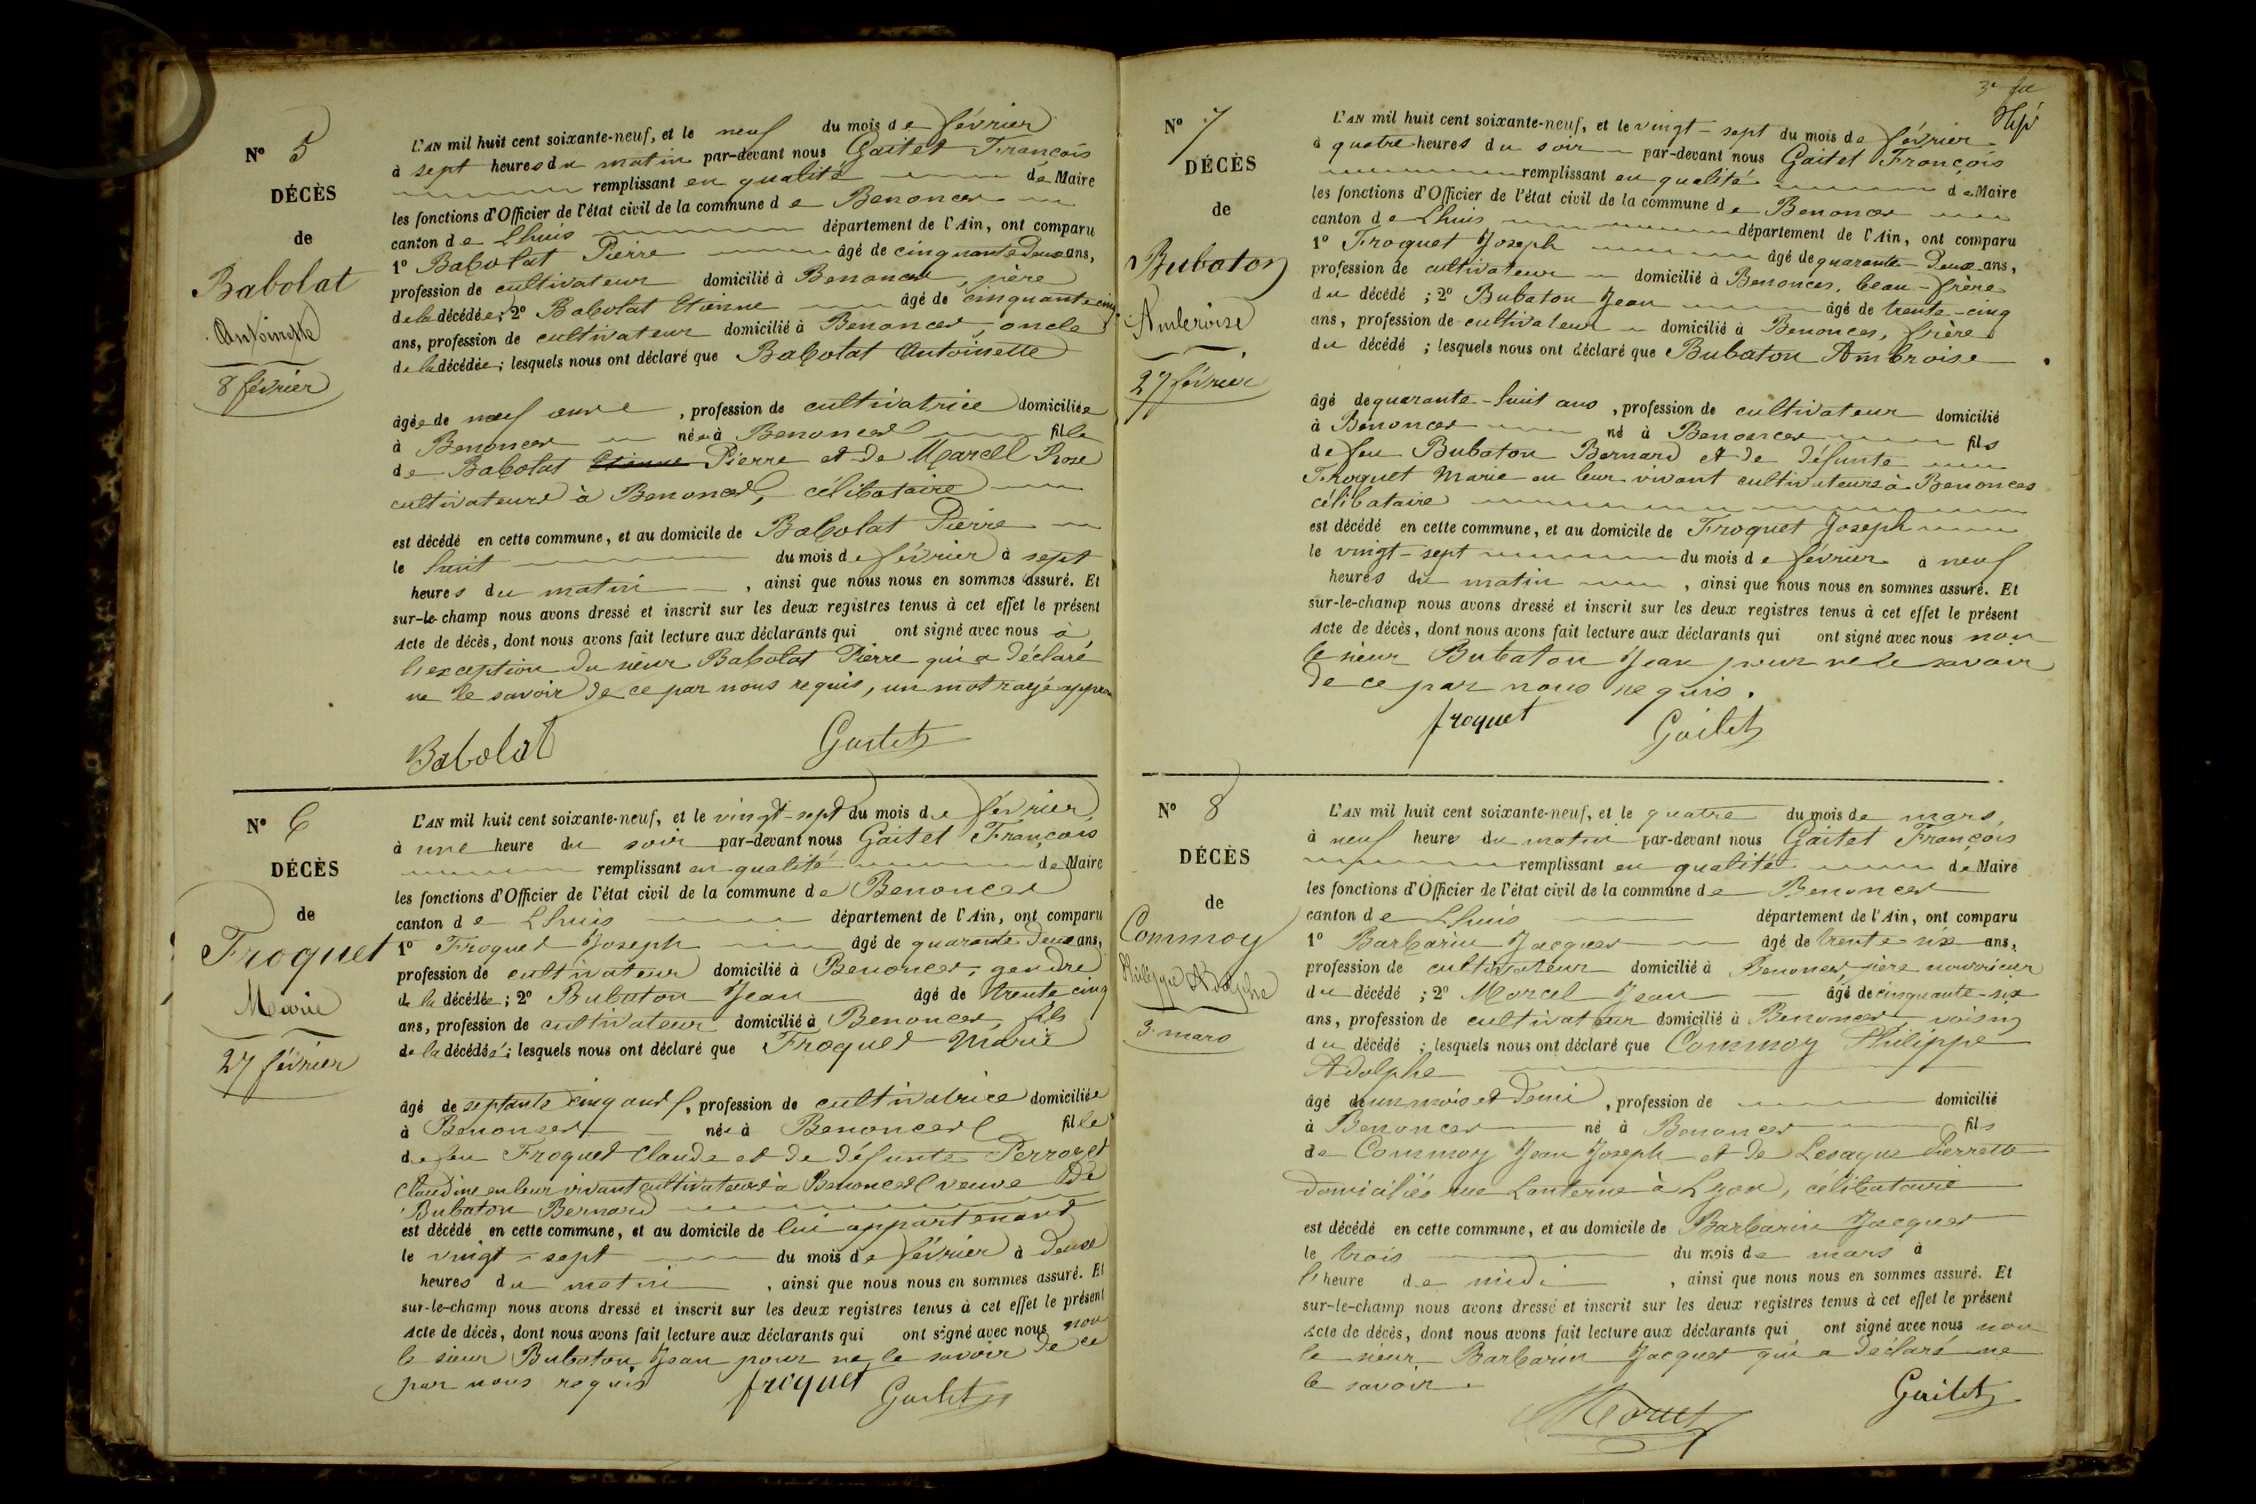 N° 5
DÉCÈS
de
Babolat
Antoinette
8 février
L'AN mil huit cent soixante-neuf, et le neuf du mois de février
à sept heures du matin par-devant nous Gaitet François
remplissant en qualité de Maire
les fonctions d'Officier de l'état civil de la commune de Benonces
canton de Lhuis département de l'Ain, ont comparu
1° Babolat Pierre âgé de cinquante deux ans,
profession de cultivateur domicilié à Benonces, père
de la décédée; 2° Babolat Etienne âgé de cinquante cinq
ans, profession de cultivateur domicilié à Benonces, oncle
de la décédée; lesquels nous ont déclaré que Babolat Antoinette
âgée de neuf , profession de cultivatrice domiciliée
à Benonces née à Benonces fille
de Babolat Etienne Pierre et de Marcel Rose
cultivateurs à Benonces, célibataire
est décédé en cette commune, et au domicile de Babolat Pierre
le huit du mois de février à sept
heures du matin , ainsi que nous nous en sommes assuré. Et
sur-le-champ nous avons dressé et inscrit sur les deux registres tenus à cet effet le présent
Acte de décès, dont nous avons fait lecture aux déclarants qui ont signé avec nous à
l'exception du sieur Babolat Pierre qui a déclaré
ne le savoir de ce par nous requis, un mot rayé approu
Babolat Gaitet
N° 6
DÉCÈS
de
Froquet
Marie
27 février
L'AN mil huit cent soixante-neuf, et le vingt-sept du mois de février
à une heure du soir par-devant nous Gaitet François
remplissant en qualité de Maire
les fonctions d'Officier de l'état civil de la commune de Benonces
canton de Lhuis département de l'Ain, ont comparu
1° Froquet Joseph âgé de quarante deux ans,
profession de cultivateur domicilié à Benonces, gendre
de la décédée; 2° Bubaton Jean âgé de trente cinq
ans, profession de cultivateur domicilié à Benonces, fils
de la décédée; lesquels nous ont déclaré que Froquet Marie
âgé de septante cinq ans, profession de cultivatrice domiciliée
à Benonces née à Benonces fille
de feu Froquet Claude et de défunte Perrozet
Claudine en leur vivant cultivateurs à Benonces veuve de
Bubaton Bernard
est décédé en cette commune, et au domicile de lui appartenant
le vingt-sept du mois de février à deux
heures du matin , ainsi que nous nous en sommes assuré. Et
sur-le-champ nous avons dressé et inscrit sur les deux registres tenus à cet effet le présent
Acte de décès, dont nous avons fait lecture aux déclarants qui ont signé avec nous non
le sieur Bubaton Jean pour ne le savoir de ce
par nous requis froquet Gaitet
N° 7
DÉCÈS
de
Bubaton
Ambroise
27 février
L'AN mil huit cent soixante-neuf, et le vingt-sept du mois de février
à quatre heures du soir par-devant nous Gaitet François
remplissant en qualité de Maire
les fonctions d'Officier de l'état civil de la commune de Benonces
canton de Lhuis département de l'Ain, ont comparu
1° Froquet Joseph âgé de quarante-deux ans,
profession de cultivateur domicilié à Benonces, beau-frère
du décédé ; 2° Bubaton Jean âgé de trente-cinq
ans, profession de cultivateur domicilié à Benonces, frère
du décédé ; lesquels nous ont déclaré que Bubaton Ambroise
âgé de quarante-huit ans, profession de cultivateur domicilié
à Benonces né à Benonces fils
de feu Bubaton Bernard et de défunte
Froquet Marie en leur vivant cultivateurs à Benonces
célibataire
est décédé en cette commune, et au domicile de Froquet Joseph
le vingt-sept du mois de février à neuf
heures du matin , ainsi que nous nous en sommes assuré. Et
sur-le-champ nous avons dressé et inscrit sur les deux registres tenus à cet effet le présent
Acte de décès, dont nous avons fait lecture aux déclarants qui ont signé avec nous non
le sieur Bubaton Jean pour ne le savoir
de ce par nous requis.
froquet Gaitet
N° 8
DÉCÈS
de
Commoy
Philippe Adolphe
3 mars
L'AN mil huit cent soixante-neuf, et le quatre du mois de mars,
à neuf heures du matin par-devant nous Gaitet François
remplissant en qualité de Maire
les fonctions d'Officier de l'état civil de la commune de Benonces
canton de Lhuis département de l'Ain, ont comparu
1° Barbarin Jacques âgé de trente six ans,
profession de cultivateur domicilié à Benonces, père nourricier
du décédé ; 2° Marcel Jean âgé de cinquante-six
ans, profession de cultivateur domicilié à Benonces voisin
du décédé ; lesquels nous ont déclaré que Commoy Philippe
Adolphe
âgé de un mois et demi , profession de domicilié
à Benonces né à Benonces fils
de Commoy Jean Joseph et de Lesaque Pierrette
domiciliés rue Lanterne à Lyon, célibataire
est décédé en cette commune, et au domicile de Barbarin Jacques
le trois du mois de mars à
l'heure de midi , ainsi que nous nous en sommes assuré. Et
sur-le-champ nous avons dressé et inscrit sur les deux registres tenus à cet effet le présent
Acte de décès, dont nous avons fait lecture aux déclarants qui ont signé avec nous non
le sieur Barbarin Jacques qui a déclaré ne
le savoir.
Gaitet